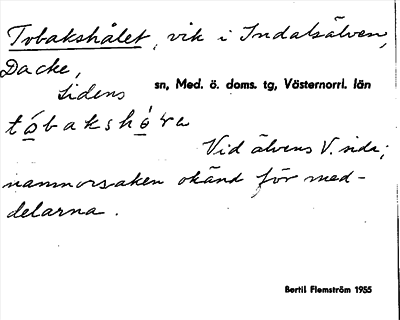 Tobakshålet, vik i Indalsälven,
Dacke,
Lidens sn, Med. ö. doms. tg, Västernorrl. län
tóbakshó̱ra
Vid älvens V. sida;
namnorsaken okänd för med-
delarna.
Bertil Flemström 1955